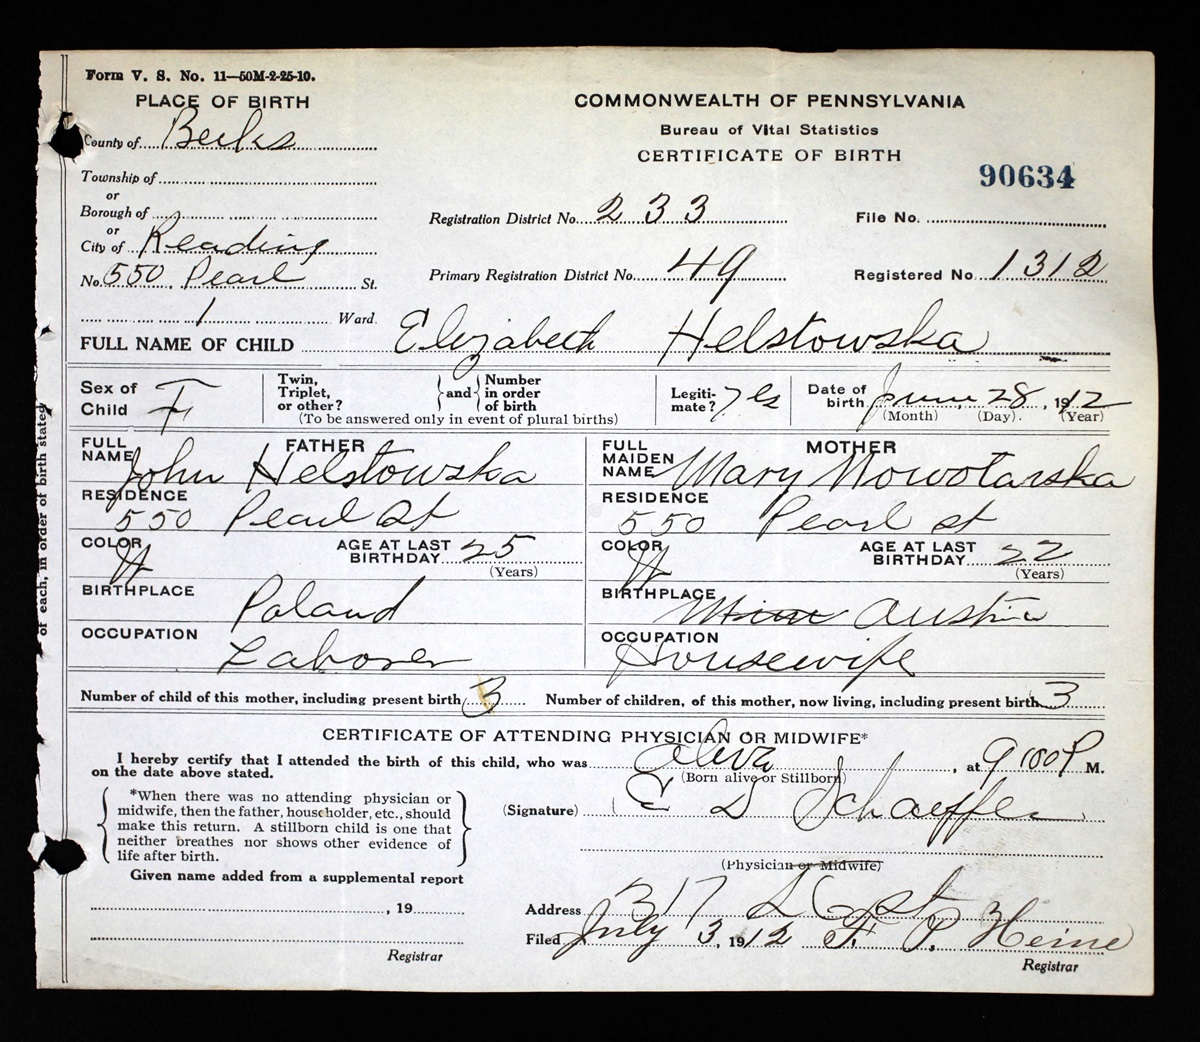 Form V. S. No. 11—50M-2-25-10.
PLACE OF BIRTH
County of Berks
Township of
or
Borough of
or
City of Reading
No. 550 Pearl St.
1 Ward.
COMMONWEALTH OF PENNSYLVANIA
Bureau of Vital Statistics
CERTIFICATE OF BIRTH
90634
Registration District No. 233
File No.
Primary Registration District No. 49
Registered No. 1312
FULL NAME OF CHILD Elizabeth Helstowska
Sex of Child F
Twin, Triplet, or other? } and { Number in order of birth
(To be answered only in event of plural births)
Legitimate? yes
Date of birth June 28, 1912
(Month) (Day) (Year)
FATHER
FULL NAME John Helstowska
RESIDENCE 550 Pearl St
COLOR W
AGE AT LAST BIRTHDAY 25
(Years)
BIRTHPLACE Poland
OCCUPATION Laborer
MOTHER
FULL MAIDEN NAME Mary Nowotarska
RESIDENCE 550 Pearl st
COLOR W
AGE AT LAST BIRTHDAY 22
(Years)
BIRTHPLACE Austria
OCCUPATION Housewife
Number of child of this mother, including present birth 3
Number of children, of this mother, now living, including present birth 3
CERTIFICATE OF ATTENDING PHYSICIAN OR MIDWIFE*
I hereby certify that I attended the birth of this child, who was alive, at 9 100 P M.
on the date above stated.
(Born alive or Stillborn)
*When there was no attending physician or
midwife, then the father, householder, etc., should
make this return. A stillborn child is one that
neither breathes nor shows other evidence of
life after birth.
(Signature) E D Schaeffer
(Physician or Midwife)
Given name added from a supplemental report
, 19
Registrar
Address 317 S 6 st
Filed July 3, 1912 F. P. Heine
Registrar
of each, in order of birth stated